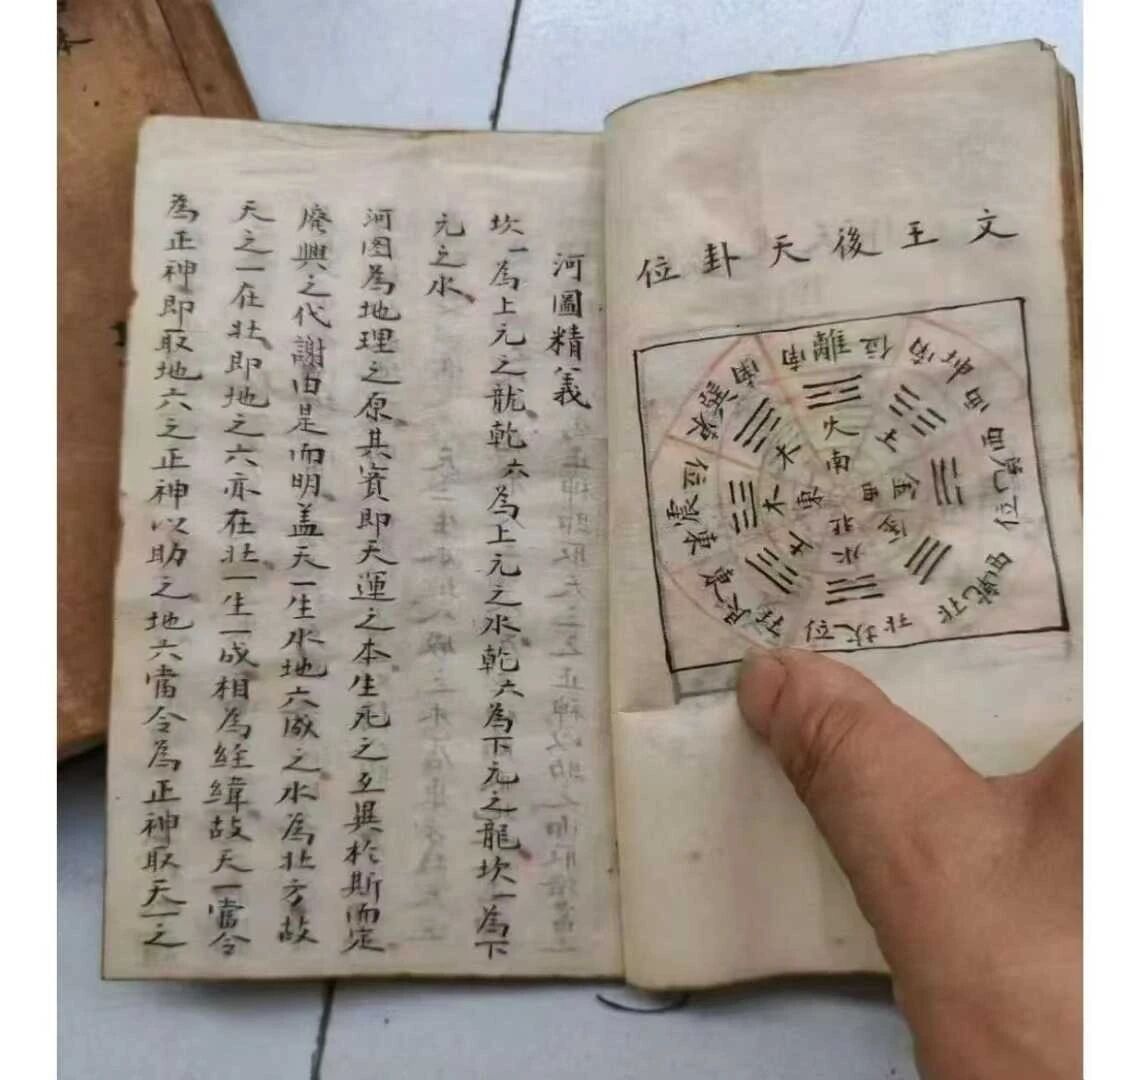 文王後天卦位
南離位
西南坤
西兌位
西北乾
北坎位
東北艮位
東震位
東南巽
火
土
金
金
水
土
木
木
南
西
北
東
河圖精義
坎一為上元之龍乾六為上元之水乾六為下元之龍坎一為下
元之水
河图為地理之原其實即天運之本生死之互異於斯而定
廢興之代謝由是而明盖天一生水地六成之水為北方故
天之一在北即地之六亦在北一生一成相為經緯故天一當令
為正神即取地六之正神以助之地六當令為正神取天一之